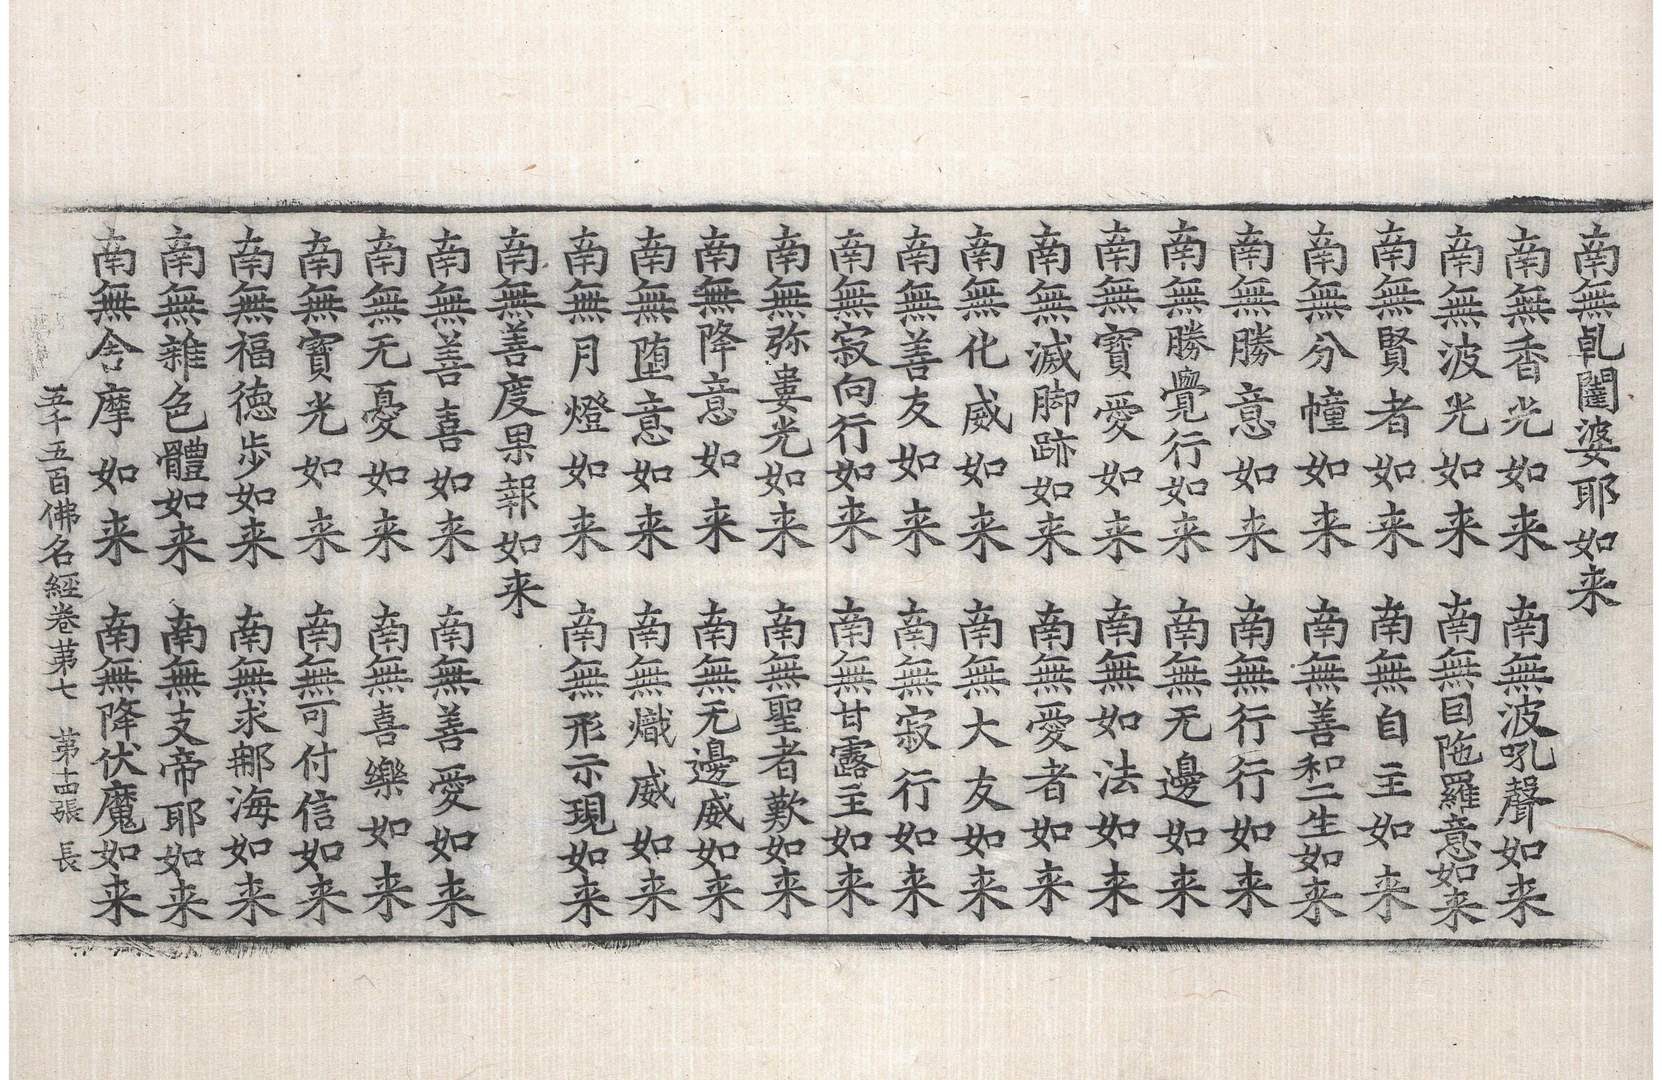 南無乹闥婆耶如来
南無香光如来 南無波吼聲如来
南無波光如来 南無因陁羅意如来
南無賢者如来 南無自主如来
南無分幢如来 南無善和二生如来
南無勝意如来 南無行行如来
南無勝覺行如来 南無无邊如来
南無寶愛如来 南無如法如来
南無滅脚跡如来 南無愛者如来
南無化威如来 南無大友如来
南無善友如来 南無寂行如来
南無寂向行如来 南無甘露主如来
南無弥婁光如来 南無聖者歎如来
南無降意如来 南無无邊威如来
南無堕意如来 南無熾威如来
南無月燈如来 南無形示現如来
南無善度果報如来
南無善喜如来 南無善愛如来
南無无憂如来 南無喜樂如来
南無寶光如来 南無可付信如来
南無福徳步如来 南無求那海如来
南無雜色體如来 南無支帝耶如来
南無舍摩如来 南無降伏魔如来
五千五百佛名經卷第七 第十四張 長